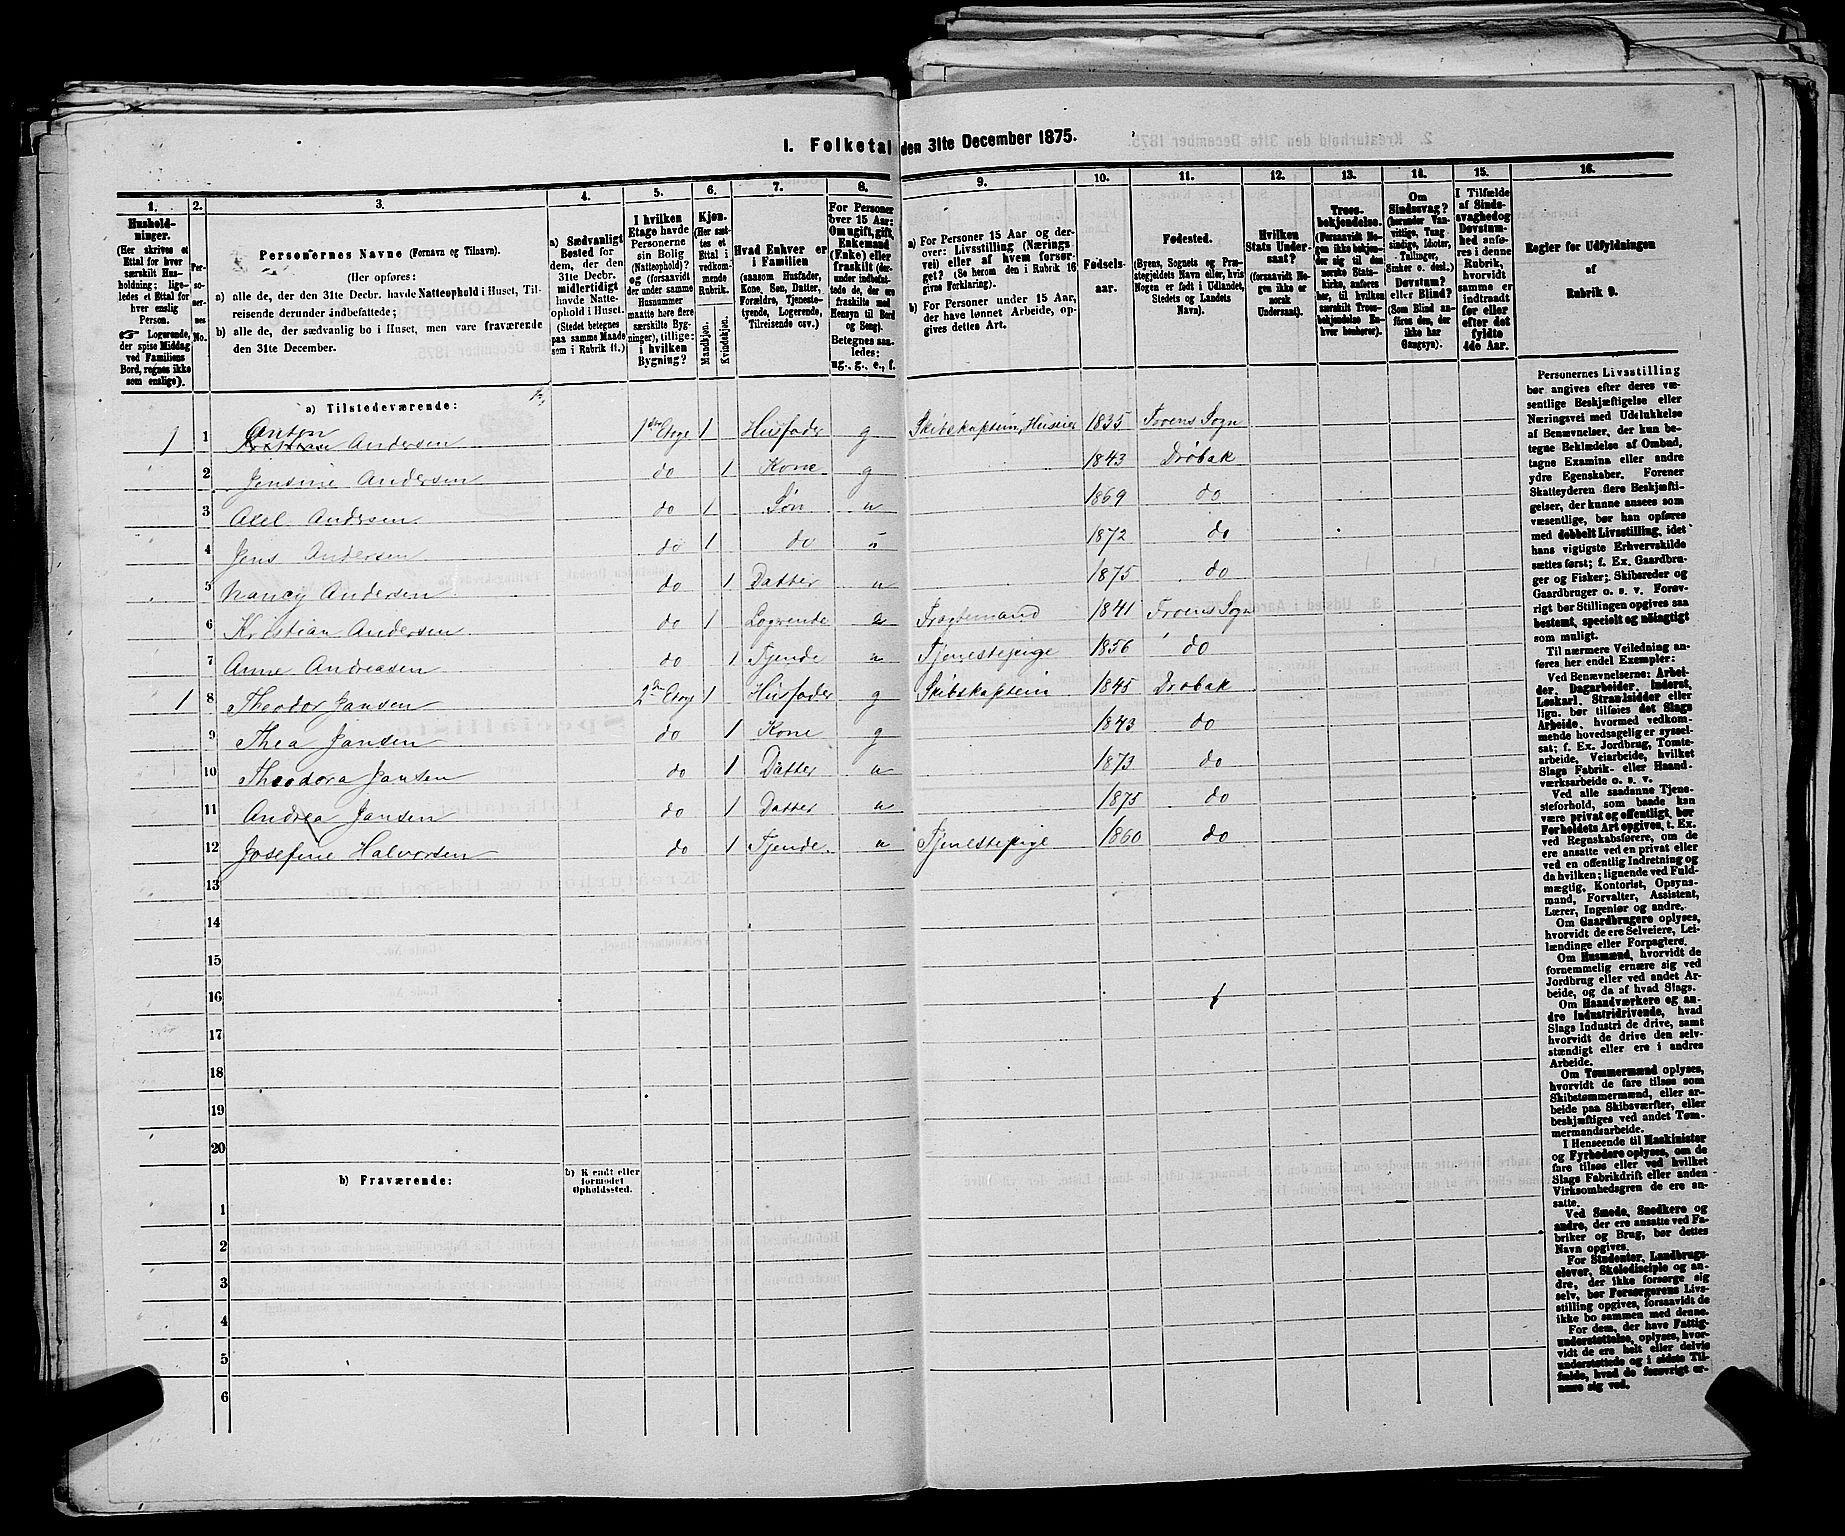 I. Folketal den 31te December 1875.
1. 2. 3. 4. 5. 6. 7. 8. 9. 10. 11. 12. 13. 14. 15. 16.
Husholdninger.
(Her skrives et
Ettal for hver
særskilt Husholdning;
ligeledes et Ettal for
hver enslig
Person.
☞ Logerende,
der spise Middag
ved Familiens
Bord, regnes ikke
som enslige).
Personernes No.
Personernes Navne (Fornavn og Tilnavn).
(Her opføres:
a) alle de, der den 31te Decbr. havde Natteophold i Huset, Tilreisende derunder indbefattede;
b) alle de, der sædvanlig bo i Huset, men vare fraværende
den 31te December.
a) Sædvanligt
Bosted for
dem, der den
31te Decbr.
midlertidigt
havde Natteophold i Huset.
(Stedet betegnes
paa samme Maade
som i Rubrik 11.)
I hvilken
Etage havde
Personerne
sin Bolig
(Natteophold)?
og (forsaavidt
der under samme
Husnummer
maatte høre flere
særskilte Bygninger), tillige:
i hvilken
Bygning?
Kjøn.
(Her sættes et
Ettal i
vedkommende
Rubrik.
Mandkjøn.
Kvindekjøn.
Hvad Enhver er
i Familien
(saasom Husfader,
Kone, Søn, Datter,
Forældre, Tjenestetyende, Logerende,
Tilreisende osv.)
For Personer
over 15 Aar:
Om ugift, gift,
Enkemand
(Enke) eller
fraskilt (derunder indbefattede de, der ere
fraskilte med
Hensyn til Bord
og Seng).
Betegnes saaledes:
ug., g., e., f.
a) For Personer 15 Aar og derover: Livsstilling (Næringsvei) eller af hvem forsørget? (Se herom den i Rubrik 16
givne Forklaring).
b) For Personer under 15 Aar,
der have lønnet Arbeide, opgives dettes Art.
Fødselsaar.
Fødested.
(Byens, Sognets og Præstegjeldets Navn eller, hvis
Nogen er født i Udlandet,
Stedets og Landets
Navn).
Hvilken
Stats Undersaat?
(forsaavidt Nogen ikke er
norsk
Undersaat).
Troesbekjendelse.
(Forsaavidt Nogen ikke bekjender sig til den
norske Statskirke, anføres
her, til hvilken
særskilt Troesbekjendelse Enhver henhører).
Om
Sindssvag?
(herunder Vanvittige, Tungsindige, Idioter,
Tullinger,
Sinker o. desl.)
Døvstum?
eller Blind?
(Som Blind anføres den, der
ikke har
Gangsyn).
I Tilfælde
af Sindssvaghed og
Døvstumhed anføres i denne
Rubrik,
hvorvidt
samme er
indtraadt
før eller
efter det
fyldte
4de Aar.
Regler for Udfyldningen
af
Rubrik 9.
a) Tilstedeværende:
1 1 Anton Andersen 1ste Etage 1 Husfader g Skibskaptein, Huseier 1835 Froens Sogn
2 Jensine Andersen do 1 Kone g 1843 Drøbak
3 Axel Andersen do 1 Søn u 1869 do
4 Jens Andersen do 1 do u 1872 do
5 Nancy Andersen do 1 Datter u 1875 do
6 Kristian Andersen do 1 Logerende Fragtemand 1841 Froens Sogn
7 Anne Andreasen do 1 Tjende u Tjenestepige 1856 do
1 8 Theodor Jansen 2den Etage 1 Husfader g Skibskaptein 1845 Drøbak
9 Thea Jansen do 1 Kone g 1843 do
10 Theodora Jansen do 1 Datter u 1873 do
11 Andrea Jansen do 1 Datter u 1875 do
12 Josefine Halvorsen do 1 Tjende u Tjenestepige 1860 do
13
14
15
16
17
18
19
20
b) Fraværende:
b) Kjendt eller
formodet
Opholdssted.
1
2
3
4
5
6
Personernes Livsstilling
bør angives efter deres væsentlige Beskjæftigelse eller
Næringsvei med Udelukkelse
af Benævnelser, der kun betegne Beklædelse af Ombud,
tagne Examina eller andre
ydre Egenskaber. Forener
Skatteyderen flere Beskjæftigelser, der kunne ansees som
væsentlige, bør han opføres
med dobbelt Livsstilling, idet
hans vigtigste Erhvervskilde
sættes først; f. Ex. Gaardbruger og Fisker; Skibsreder og
Gaardbruger o. s. v. Forøvrigt bør Stillingen opgives saa
bestemt, specielt og nøiagtigt
som muligt.
Til nærmere Veiledning anføres her endel Exempler:
Ved Benævnelserne: Arbeider, Dagarbeider, Inderst,
Løskarl, Strandsidder eller
lign. bør tilføies det Slags
Arbeide, hvormed vedkommende hovedsagelig er sysselsat; f. Ex. Jordbrug, Tomtearbeide, Veiarbeide, hvilket
Slags Fabrik- eller Haandværksarbeide o. s. v.
Ved alle saadanne Tjenesteforhold, som baade kan
være privat og offentligt, bør
Forholdets Art opgives, t. Ex.
ved Regnskabsførere, om de
ere ansatte ved en privat eller
ved en offentlig Indretning og
da hvilken; lignende ved Fuldmægtig, Kontorist, Opsynsmand, Forvalter, Assistent,
Lærer, Ingeniør og andre.
Om Gaardbrugere oplyses,
hvorvidt de ere Selveiere, Leilændinge eller Forpagtere.
Om Husmænd, hvorvidt de
fornemmelig ernære sig ved
Jordbrug eller ved andet Arbeide, og da af hvad Slags.
Om Haandværkere og andre Industridrivende, hvad
Slags Industri de drive, samt
hvorvidt de drive den selvstændigt eller ere i andres
Arbeide.
Om Tømmermænd oplyses,
hvorvidt de fare tilsøs som
Skibstømmermænd, eller arbeide paa Skibsværfter, eller
beskjæftiges ved andet Tømmermandsarbeide.
I Henseende til Maskinister
og Fyrbødere oplyses, om de
fare tilsøs eller ved hvilket
Slags Fabrikdrift eller anden
Virksomhedsgren de ere ansatte.
Ved Smede, Snedkere og
andre, der ere ansatte ved Fabriker og Brug, bør dettes
Navn opgives.
For Studenter, Landbrugselever, Skoledisciple og andre, der ikke forsørge sig
selv, bør Forsørgerens Livsstilling opgives, forsaavidt de
ikke bo sammen med denne.
For dem, der have Fattigunderstøttelse, oplyses, hvorvidt de ere helt eller delvis
understøttede og i sidste Tilfælde, hvad de forøvrigt ernære sig ved.